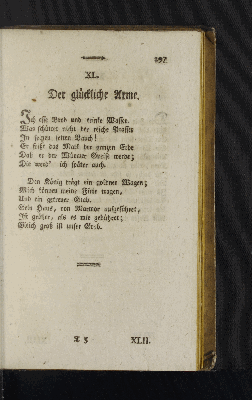 297
XL.
Der glückliche Arme.
Ich esse Brod und trinke Wasser.
Was schüttet nicht der reiche Prasser
In seinen Bauch!
Er frißt das Mark der ganzen Erde
Daß er der Würmer Speise werde;
Die werd' ich später auch.
Den König trägt ein goldner Wagen;
Mich können meine Füße tragen,
Und ein getreuer Stab.
Sein Haus, von Marmor aufgeführet,
Ist größer, als es mir gebühret;
Gleich groß ist unser Grab.
T 5 XLII.